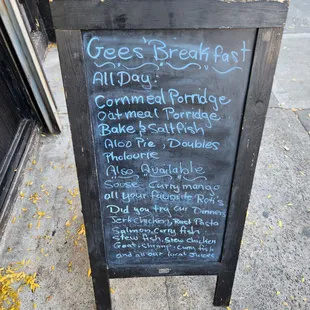 Gees' Breakfast
All Day:
Cornmeal Porridge
Oatmeal Porridge
Bake & Saltfish
Aloo Pie, Doubles
Pholourie
Also Available
Soose - Curry mango
all your favorite Roti's
Did you try our Dinner
Jerk Chicken, Pasta
Salmon, Curry fish
Stew fish, Stew chicken
Goat, Shrimp, Curry fish
and all our local Juices